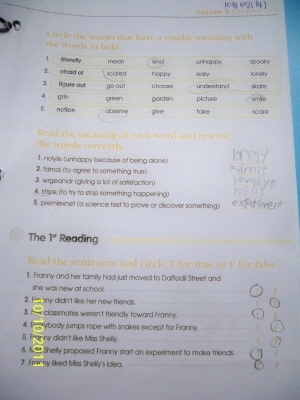 Lesson
Circle the words that have a similar meaning with
the words in bold.
1. friendly mean kind unhappy spooky
2. afraid of scared happy easy lonely
3. figure out go out choose understand skate
4. grin green garden picture smile
5. notice observe give take scare
Read the meaning of each word and rewrite
the words correctly.
1. nolyle (unhappy because of being alone) lonely
2. tdmai (to agree to something true) admit
3. wrgeanidr (giving a lot of satisfaction)
4. (to try to stop something happening)
5. premiexnet (a science test to prove or discover something) experiment
The 1st Reading
Read the sentences and circle T for true or F for false.
1. Franny and her family had just moved to Daffodil Street and
she was new at school.
2. Franny didn't like her new friends.
3. classmates weren't friendly toward Franny.
4. Everybody jumps rope with snakes except for Franny.
5. Franny didn't like Miss Shelly.
6. Miss Shelly proposed Franny start an experiment to make friends.
7. Franny liked Miss Shelly's idea.
10/10/2011